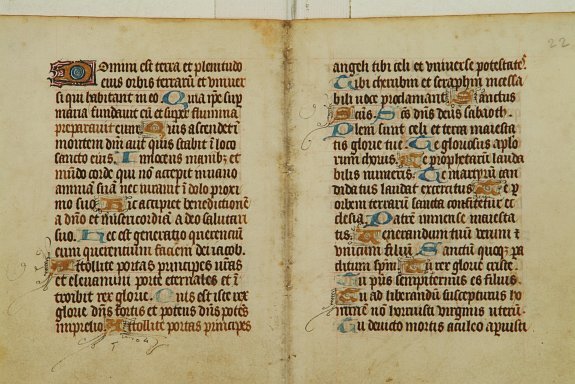 Domini est terra et plenitudo
eius orbis terrarũ et univer
si qui habitant in eo Quia ip̃e sup̃
maria fundavit eũ et sup̃ flumina
preparavit eum Quis ascendet ĩ
montem dñi aut quis stabit ĩ loco
sancto eius. Innocens manib; et
mũdo corde qui nõ accepit ĩ vano
animã suã nec iuravit ĩ dolo proxi
mo suo Hic accipiet benedictionẽ
a dño et misericordiã a deo salutari
suo. Hec est generatio querenciũ
eum querencium faciem dei iacob.
Attollite portas principes vr̃as
et elevamini porte eternales et ĩ
troibit rex glorie. Quis est iste rex
glorie dñs fortis et potens dñs potẽs
in prelio Attollite portas principes
22
angeli tibi celi et universe potestate
Tibi cherubin et seraphin incessa
bili voce proclamant Sanctus
Scũs. Sc̃s dñs deus sabaoth.
Pleni sunt celi et terra maiesta
tis glorie tue. Te gloriosus ap̃lo
rum chorus. Te prophetarũ lauda
bilis numerus. Te martyrũ can
didatus laudat exercitus Te p̃
orbem terrarũ sancta confitetur ec
clesia Patrẽ inmense maiesta
tis Venerandum tuũ verum et
unicum filiũ Sanctũ quoq; pa
clitum sp̃m Tu rex glorie criste.
Tu pr̃is sempiternus es filius.
Tu ad liberandũ suscepturus ho
minẽ nõ horruisti virginis uterũ.
Tu devicto mortis aculeo aperuisti